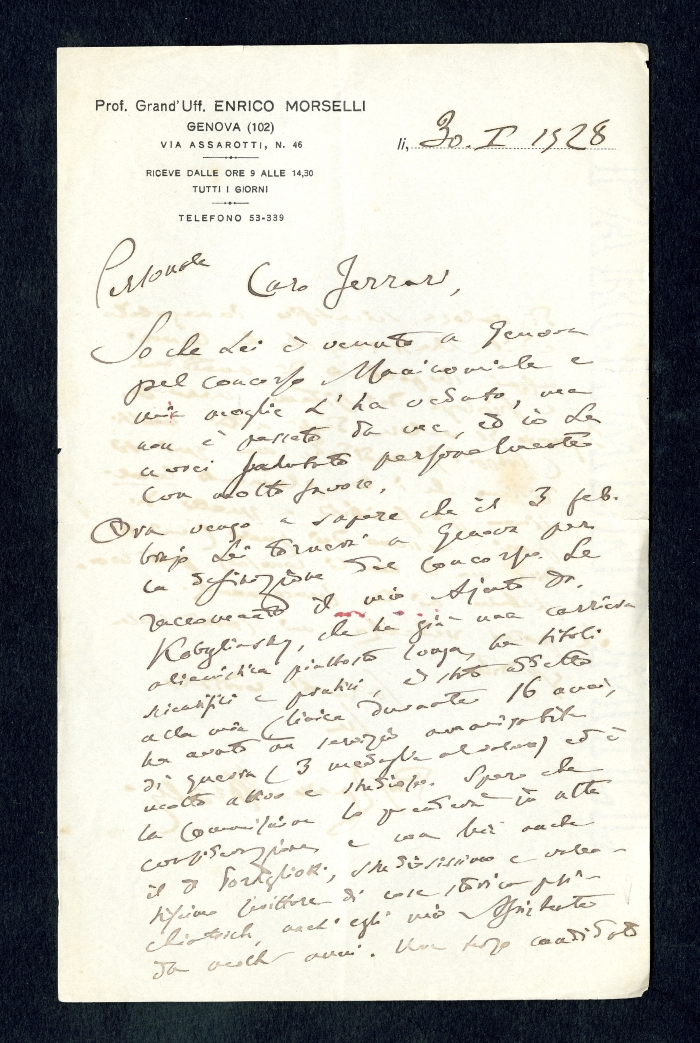 Prof. Grand'Uff. ENRICO MORSELLI
GENOVA (102)
VIA ASSAROTTI, N. 46
RICEVE DALLE ORE 9 ALLE 14,30
TUTTI I GIORNI
TELEFONO 53-339
li, 30. I 1928
Personale
Caro Ferrari,
So che Lei è venuto a Genova
pel concorso Manicomiale e
mia moglie L'ha veduto, ma
non è passato da me, ed io La
avrei salutato personalmente
con molto favore.
Ora vengo a sapere che il 3 feb.
Lei tornerà a Genova per
la definizione del Concorso. Le
raccomando il mio Ajuto Dr.
Kobylinsky, che ha già una carriera
alienistica piuttosto lunga, ha titoli
scientifici e pratici, è stato addetto
alla mia Clinica durante 16 anni,
ha avuto un servizio ammirabile
di guerra (3 medaglie al valore) ed è
molto attivo e studioso. Spero che
la Commissione lo prenderà in alta
considerazione, e con lui anche
il Dr Portigliotti, studiosissimo e valen-
tissimo scrittore di cose storico psi-
chiatrich, anch'egli mio Assistente
da molti anni. Un terzo candidato